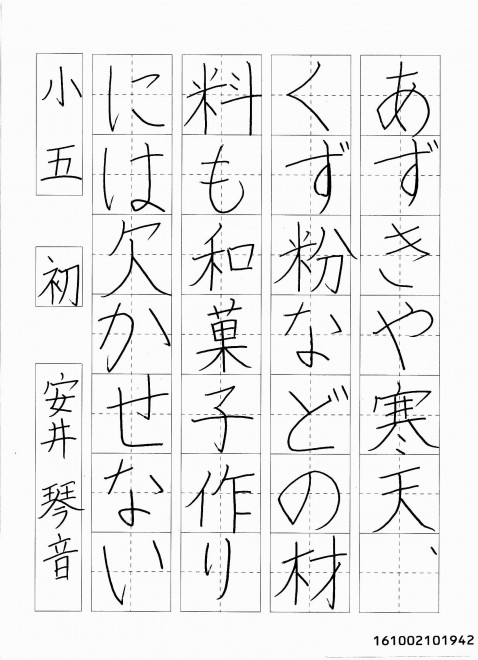 あずきや寒天、
くず粉などの材
料も和菓子作り
には欠かせない
小五
初
安井琴音
161002101942